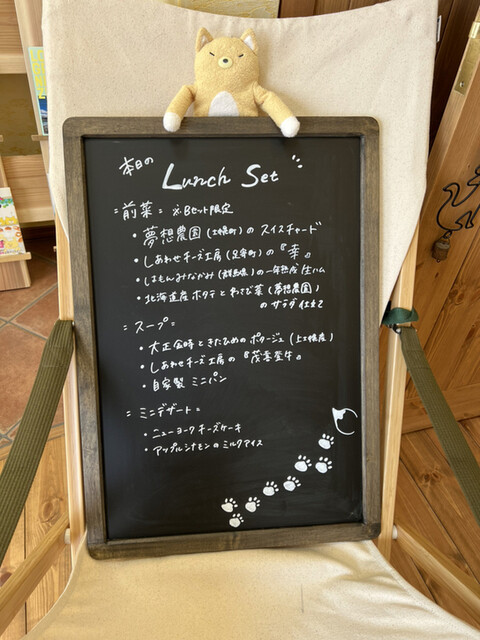 本日の Lunch Set
= 前菜 = ※Bセット限定
・夢想農園(士幌町)の スイスチャード
・しあわせチーズ工房(足寄町)の『幸』
・しましんみなかみ(群馬県)の一年熟成生ハム
・北海道産ホタテとわさび菜(夢想農園)
のサラダ仕立て
= スープ =
・大正金時ときたひめのポタージュ(上士幌産)
・しあわせチーズ工房の『茂喜登牛』
・自家製 ミニパン
= ミニデザート =
・ニューヨークチーズケーキ
・アップルシナモンのミルクアイス